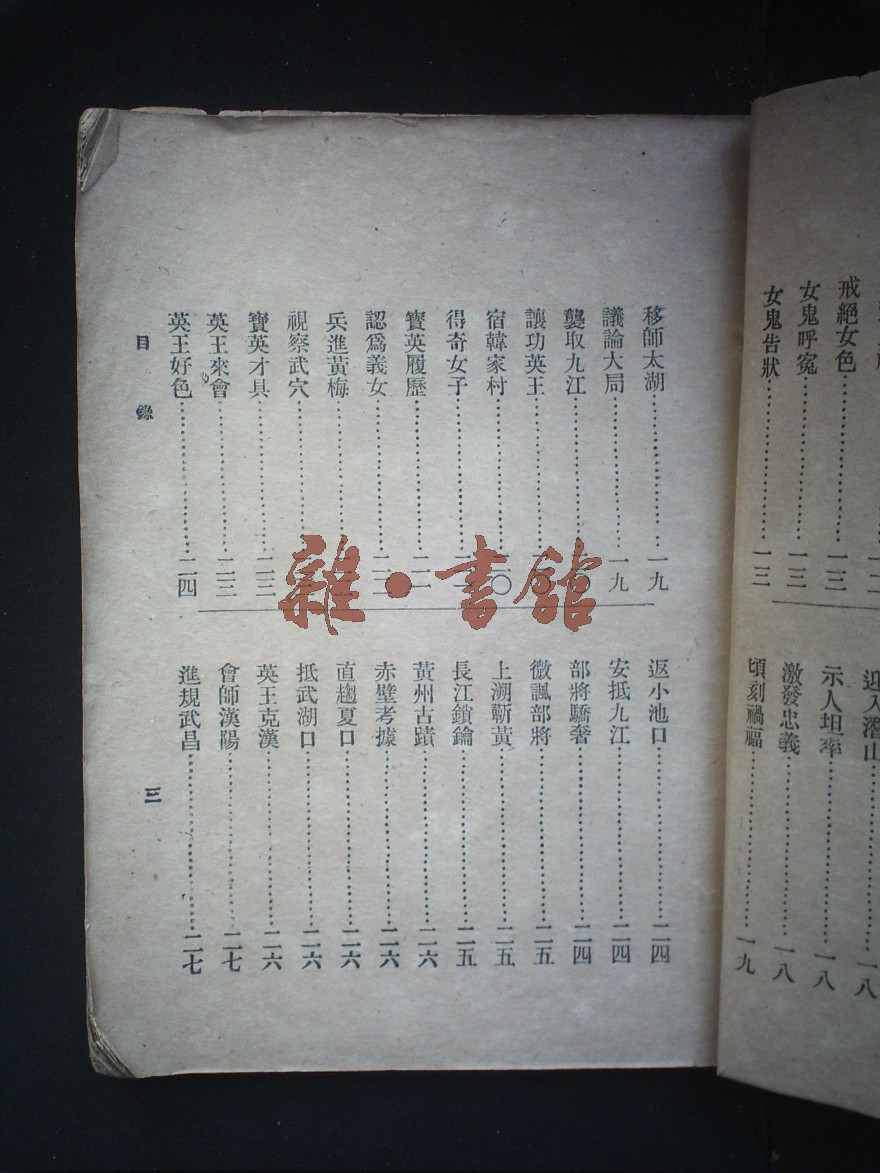 戒絕女色……一三
女鬼呼冤……一三
女鬼告狀……一三
迎入潛山……一八
示人坦率……一八
激發忠義……一八
頃刻禍福……一九
移師太湖……一九
議論大局……一九
襲取九江……二〇
讓功英王……二〇
宿韓家村……二〇
得奇女子
寳英履歷
認爲義女
兵進黃梅
視察武穴
寳英才具……二三
英王來會……二三
英王好色……二四
返小池口……二四
安抵九江……二四
部將驕奢……二四
微諷部將……二五
上溯蘄黃……二五
長江鎖鑰……二五
黃州古蹟……二六
赤壁考據……二六
直趨夏口……二六
抵武湖口……二六
英王克漢……二六
會師漢陽……二七
進規武昌……二七
目錄
三
雜·書館